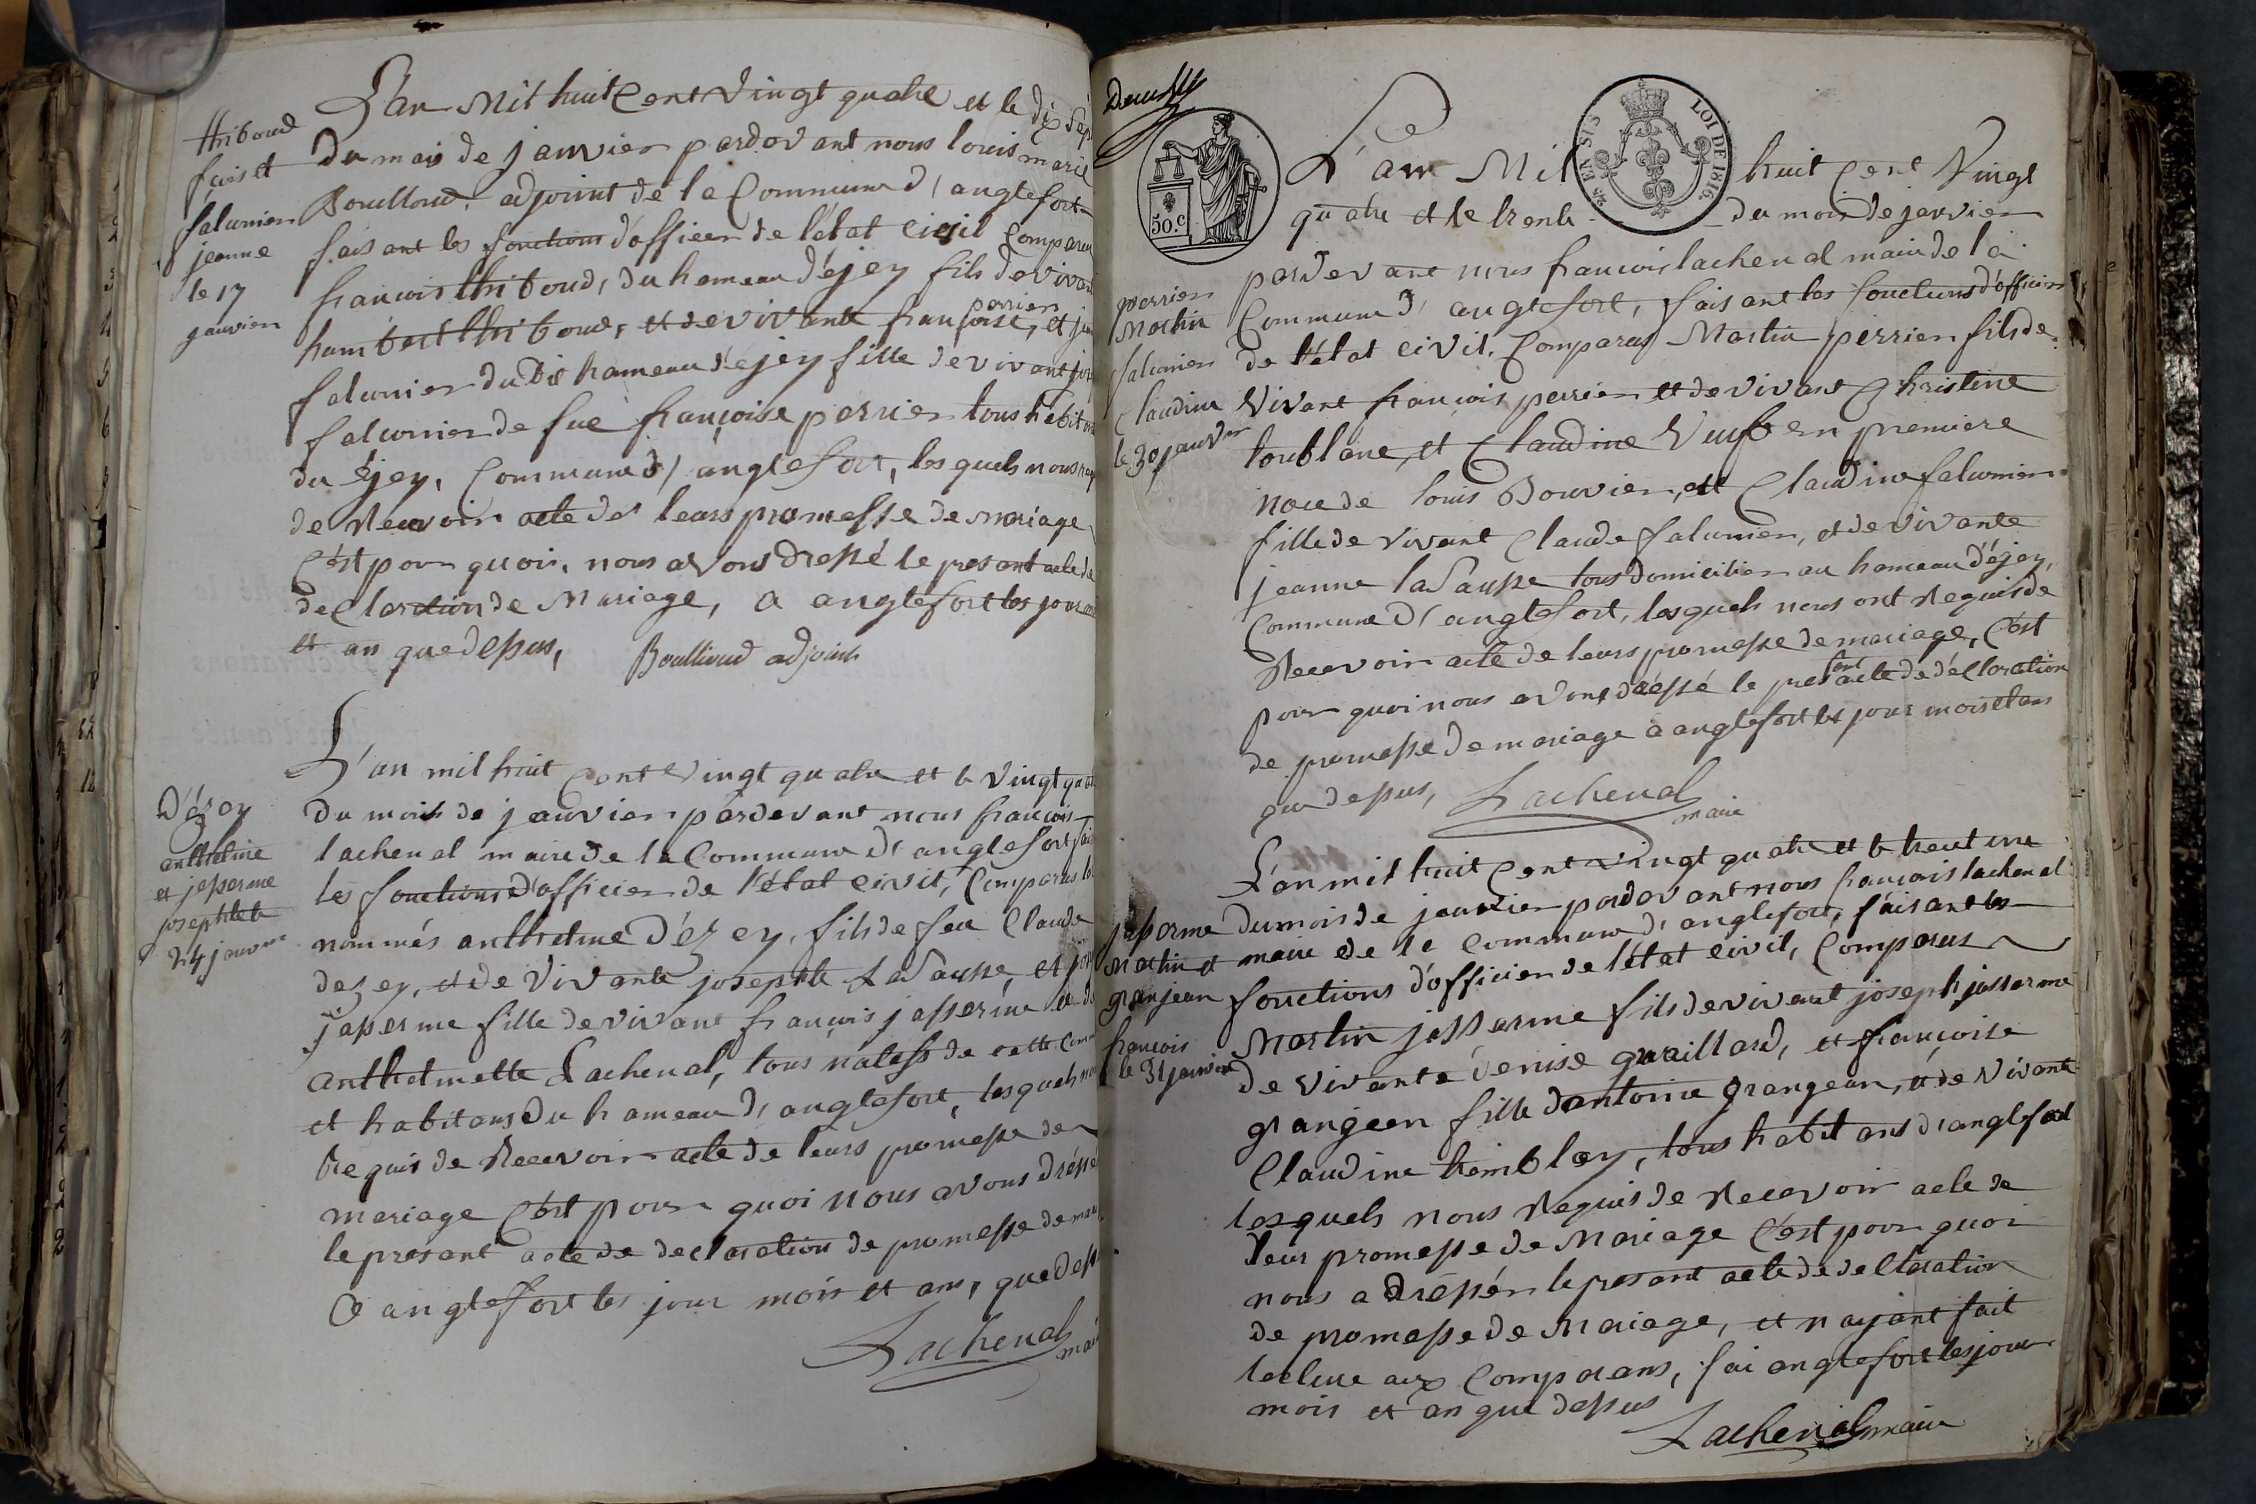 L'an Mil huit Cent Vingt quatre et le dix sept
du mois de janvier pardevant nous louis marie
Boullioud, adjoint de la Commune d'anglefort
faisant les fonctions d'officier de l'état civil Comparus
francois thiboud, du hameau d'éjey fils de vivant
humbert thiboud, et de vivante françoise perrier, et
falconier du dit hameau d'éjey fille de vivant
falconier de fue françoise perrier tous habitans
du Ejey, Commune d'anglefort, les quels nous
de Recevoir acte de leurs promesse de mariage
C'est pour quoi, nous avons dressé le presant acte de
declaration de Mariage, a anglefort les jour
et an que dessus,
Boullioud adjoint
thiboud
fçois et
falconier
jeanne
le 17
janvier
L'an mil huit Cent Vingt quatre et le vingt quatre
du mois de janvier pardevant nous francois
lachenal maire de la Commune d'anglefort
les fonctions d'officier de l'état civil, Comparus
nommés anthelme D'ézey, fils de feu Claude
dezey, et de Vivante josephte LaSausse, et
jasserme fille de vivant francois jasserme et de
anthelmette Lachenal, tous natifs de cette
et habitans du hameau d'anglefort, lesquels
Requis de Recevoir acte de leurs promesse de
mariage C'est pour quoi nous avons dréssé
le presant acte de declaration de promesse de
a anglefort les jour mois et ans, que dess
Lachenal
D'ézey
anthelme
et jasserme
josephte le
24 janvier
Deux
50. C
LOI DE 1816.
L'an Mil huit Cent Vingt
quatre et le trente du mois de janvier
pardevant nous francois lachenal maire de la
Commune d'anglefort, faisant les fonctions d'officier
de l'état civil, Comparus Martin perrier fils de
Vivant francois perrier et de vivant Christine
toublane, et Claudine Veufe en premiere
noce de louis Bouvier, et Claudine falconier
fille de vivant Claude falconier, et de vivante
jeanne laSausse tous domicilier au hameau d'éjey,
Commune d'anglefort, lesquels nous ont Requis de
Recevoir acte de leurs promesse de mariage, C'est
pour quoi nous avons dréssé le presant acte de déclaration
de promesse de mariage a anglefort les jour mois et ans
que dessus,
Lachenal
maire
perrier
Martin
falconier
Claudine
le 30 janvier
L'an mil huit Cent vingt quatre et le trent une
du mois de janvier pardevant nous francois lachenal
maire de la commune d'anglefort, faisant les
fonctions d'officier de l'état civil, Comparus
Martin jasserme fils de vivant joseph jasserme
de vivante denise gwaillard, et françoise
grangean fille dantoine grangean, et de vivante
Claudine hemblay, tous habitans d'anglefort
lesquels nous Requis de Recevoir acte de
leur promesse de Mariage C'est pour quoi
nous a dressér le presant acte de declaration
de promesse de Mariage, et n ayant fait
lecture aux Comparans, fai anglefort les jour
mois et an que dessus
Lachenal maire
jasserme
Martin et
granjean
francois
le 31 janvier